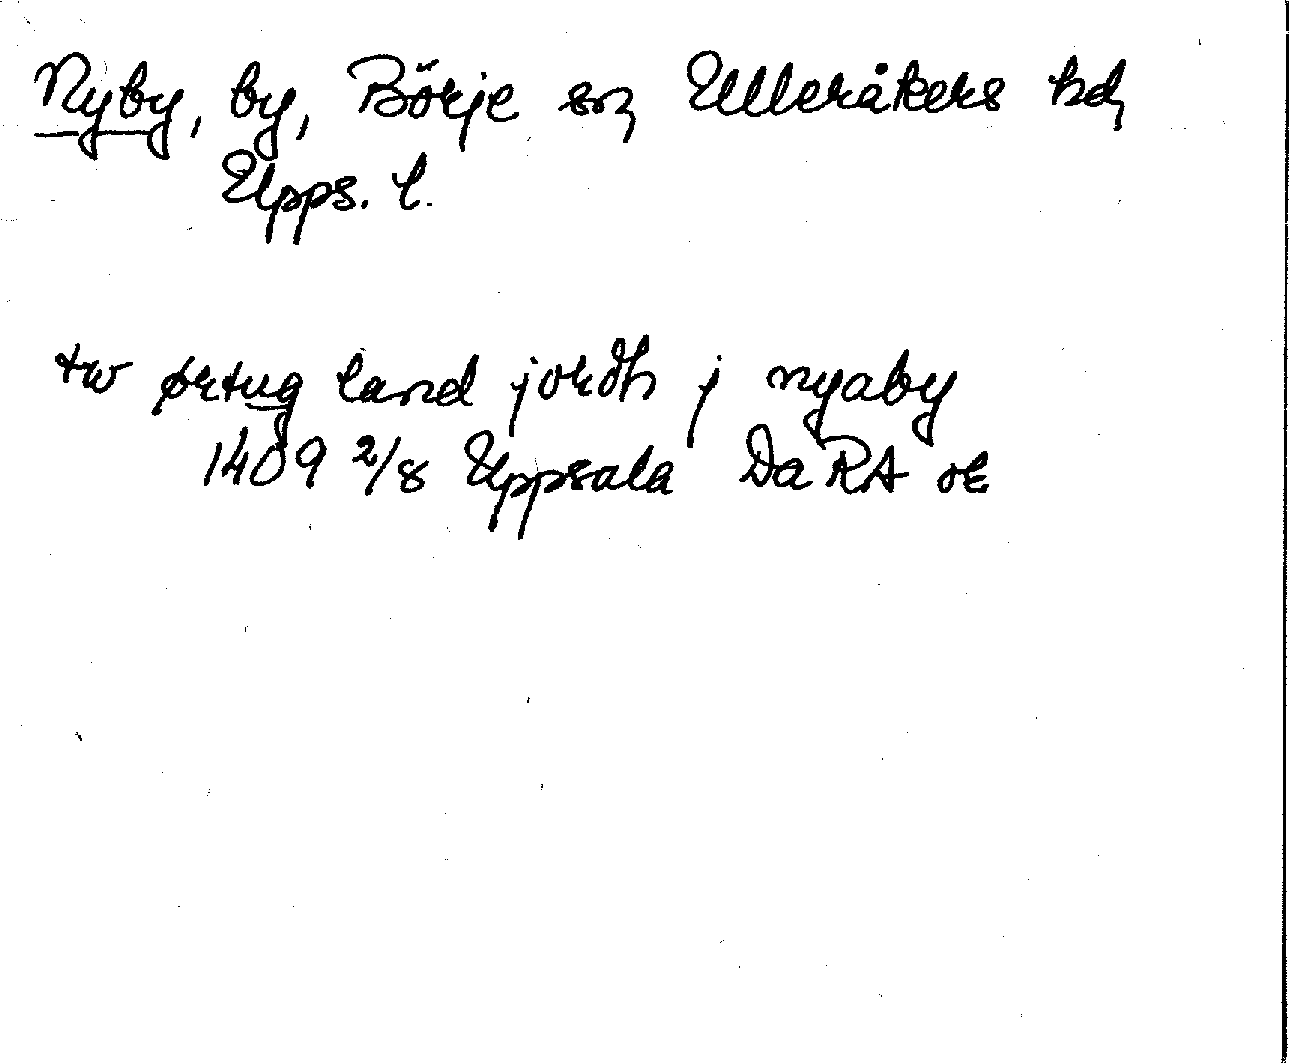 Nyby, by, Börje sn Ulleråkers hd
Upps. l.
tw ørtug land jordh j nyaby
1409 2/8 Uppsala Da RA or